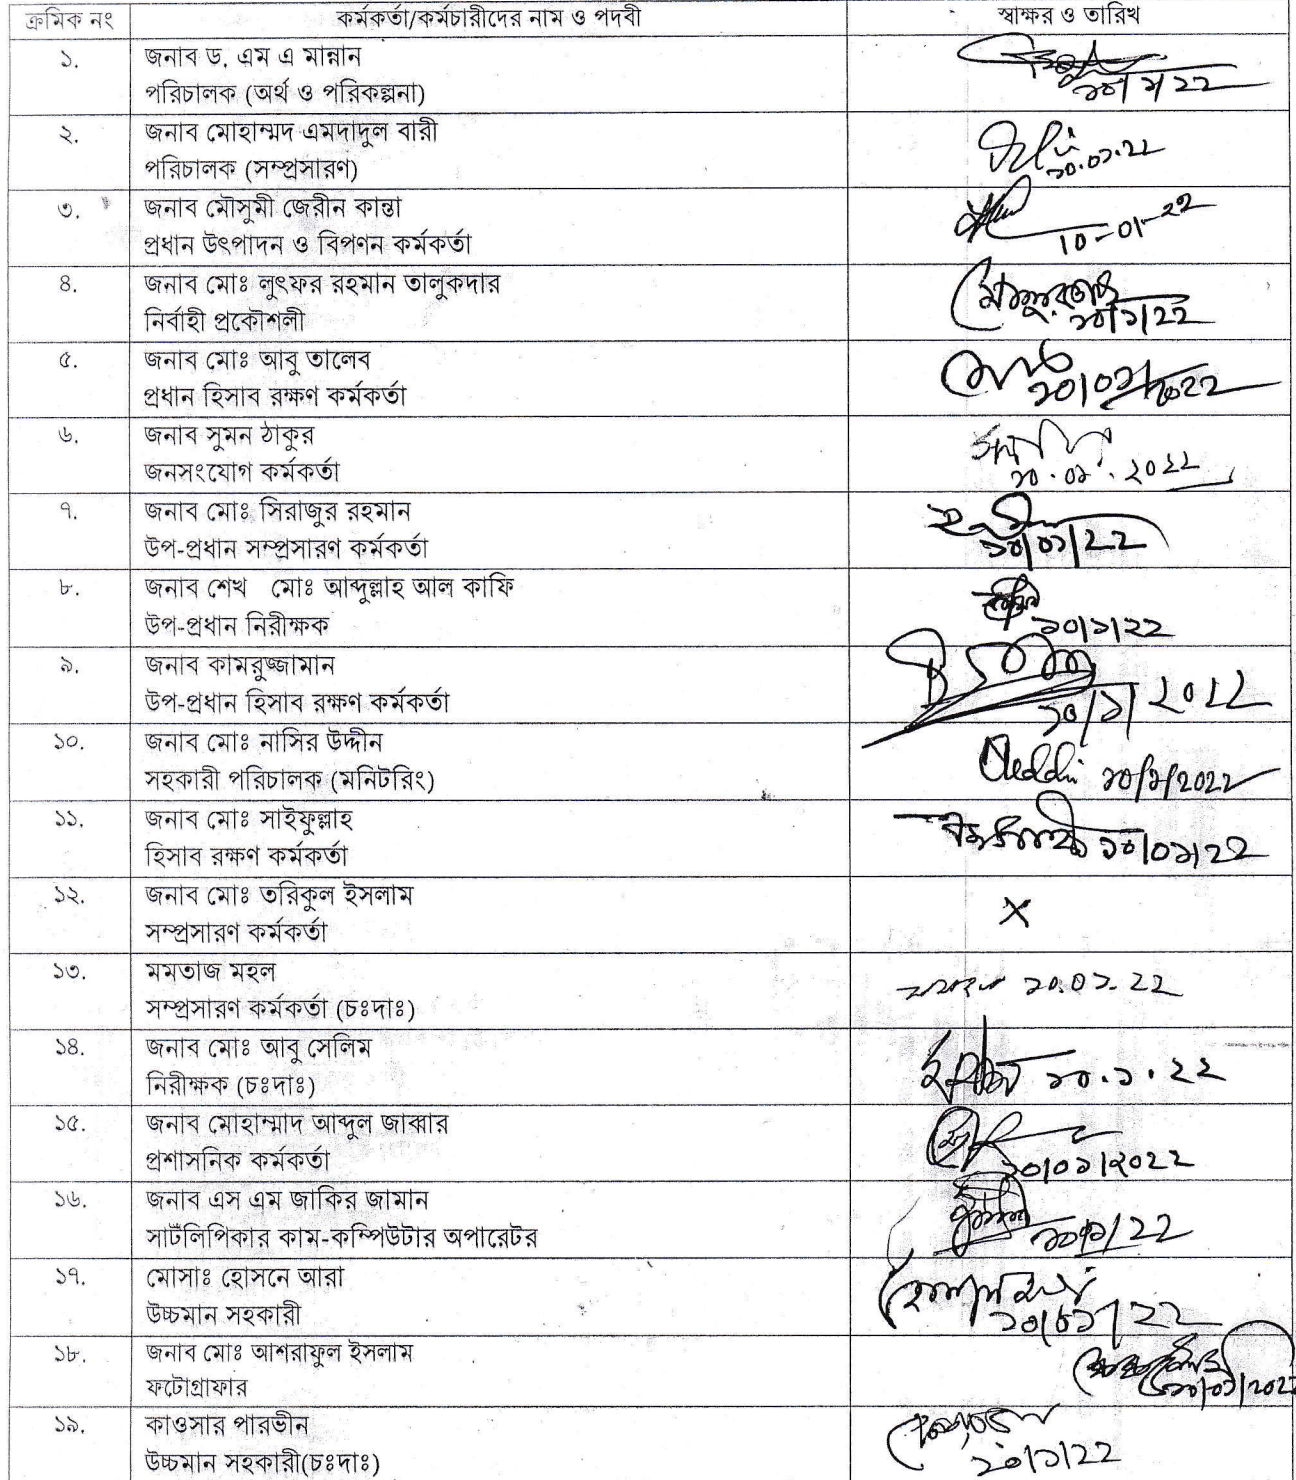 ক্রমিক নং কর্মকর্তা/কর্মচারীদের নাম ও পদবী স্বাক্ষর ও তারিখ
১. জনাব ড. এম এ মান্নান
পরিচালক (অর্থ ও পরিকল্পনা) ১০/১/২২
২. জনাব মোহাম্মদ এমদাদুল বারী
পরিচালক (সম্প্রসারণ) ১০.০১.২২
৩. জনাব মৌসুমী জেরীন কান্তা
প্রধান উৎপাদন ও বিপণন কর্মকর্তা 10-01-22
৪. জনাব মোঃ লুৎফর রহমান তালুকদার
নির্বাহী প্রকৌশলী ১০/১/২২
৫. জনাব মোঃ আবু তালেব
প্রধান হিসাব রক্ষণ কর্মকর্তা ১০/০১/২০২২
৬. জনাব সুমন ঠাকুর
জনসংযোগ কর্মকর্তা ১০.০১.২০২২
৭. জনাব মোঃ সিরাজুর রহমান
উপ-প্রধান সম্প্রসারণ কর্মকর্তা ১০/০১/২২
৮. জনাব শেখ মোঃ আব্দুল্লাহ আল কাফি
উপ-প্রধান নিরীক্ষক ১০/১/২২
৯. জনাব কামরুজ্জামান
উপ-প্রধান হিসাব রক্ষণ কর্মকর্তা ১০/১/২০২২
১০. জনাব মোঃ নাসির উদ্দীন
সহকারী পরিচালক (মনিটরিং) ১০/১/২০২২
১১. জনাব মোঃ সাইফুল্লাহ
হিসাব রক্ষণ কর্মকর্তা ১০/০১/২২
১২. জনাব মোঃ তরিকুল ইসলাম
সম্প্রসারণ কর্মকর্তা X
১৩. মমতাজ মহল
সম্প্রসারণ কর্মকর্তা (চঃদাঃ) ১০.০১.২২
১৪. জনাব মোঃ আবু সেলিম
নিরীক্ষক (চঃদাঃ) ১০.১.২২
১৫. জনাব মোহাম্মাদ আব্দুল জাব্বার
প্রশাসনিক কর্মকর্তা ১০/০১/২০২২
১৬. জনাব এস এম জাকির জামান
সাটঁলিপিকার কাম-কম্পিউটার অপারেটর ১০/১/২২
১৭. মোসাঃ হোসনে আরা
উচ্চমান সহকারী ১০/০১/২২
১৮. জনাব মোঃ আশরাফুল ইসলাম
ফটোগ্রাফার ১০/০১/২০২২
১৯. কাওসার পারভীন
উচ্চমান সহকারী(চঃদাঃ) ১০/১/২২